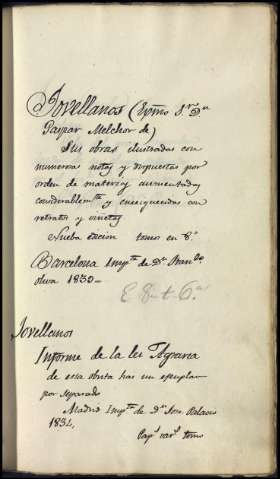 Jovellanos (Exmo Sr. Dn
Gaspar Melchor de)
Sus obras ilustradas con
numerosas notas y dispuestas por
orden de materias aumentadas
considerablemte y enriquecidas con
retratos y viñetas
Nueba edicion tomos en 8º
Barcelona Impta de Dn Franco
oliva 1839—
E 8 6ª
Jovellanos
Informe de la lei Agraria
de esta obrita hai un ejemplar
por separado
Madrid Impta de Dn Palacios
1834,
tomo